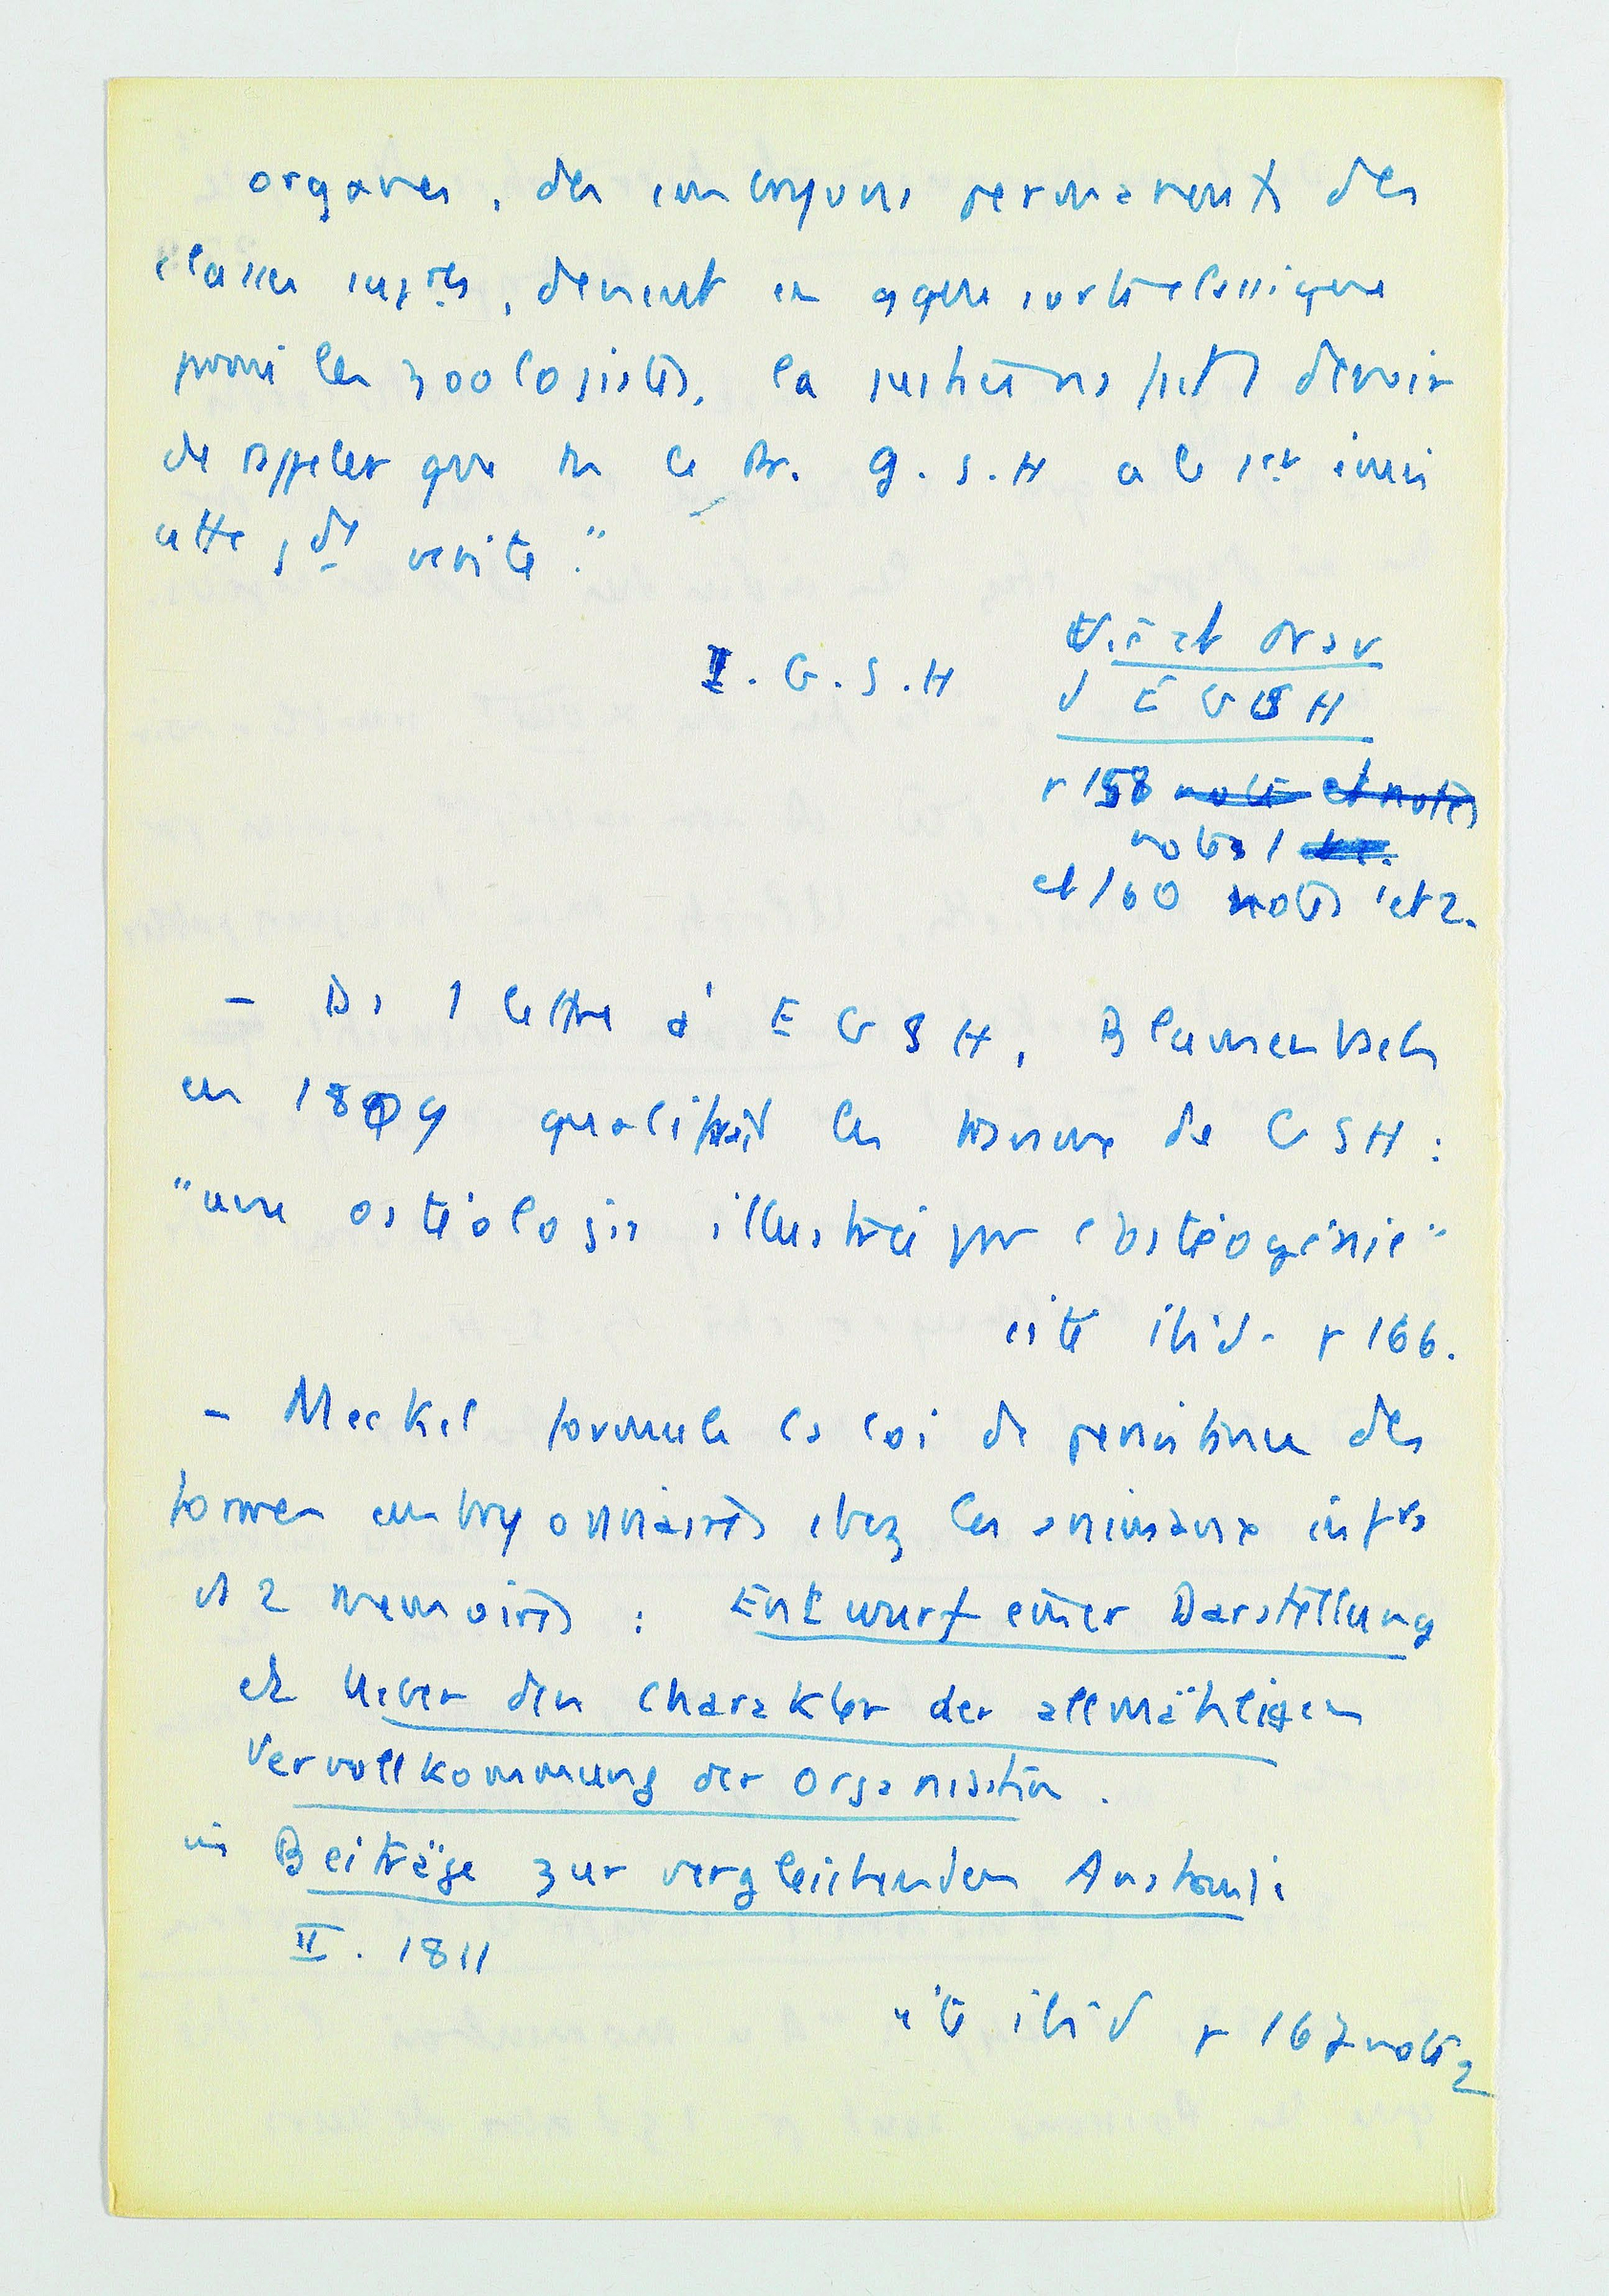 organes, des embryons permanents des
classes supres, devient en qque sorte classique
parmi les zoologistes, la justice ns fait devoir
de rappeler que M le Pr. G. S. H a le 1er émis
cette gde vérité."
I. G. S. H
Vie et trav
d E G S H
p 158
notes 1
et 160 notes 1 et 2.
- Ds 1 lettre à E G S H, Blumenbach
en 1809 qualifiait les travaux de G S H :
"une ostéologie illustrée par l'ostéogénie"
cité ibid - p 166.
- Meckel formule la loi de persistance des
formes embryonnaires chez les animaux infrs
ds 2 memoires : Entwurf einer Darstellung
et Ueber den Charakter der allmähligen
Vervollkommung der Organisation.
in Beiträge zur vergleichenden Anatomie
II. 1811
cité ibid p 167 note 2